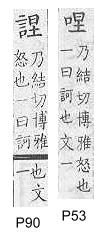 乃結切博雅怒也
一曰訶也文一
乃結切博雅
怒也一曰訶
也文
一
P90
P53